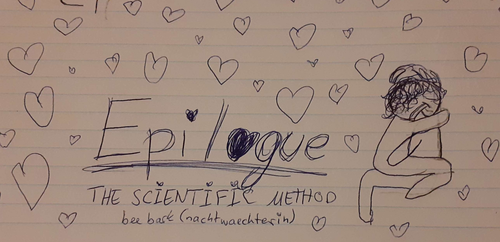 Epilogue
THE SCIENTIFIC METHOD
bee bark (nachtwaechterin)